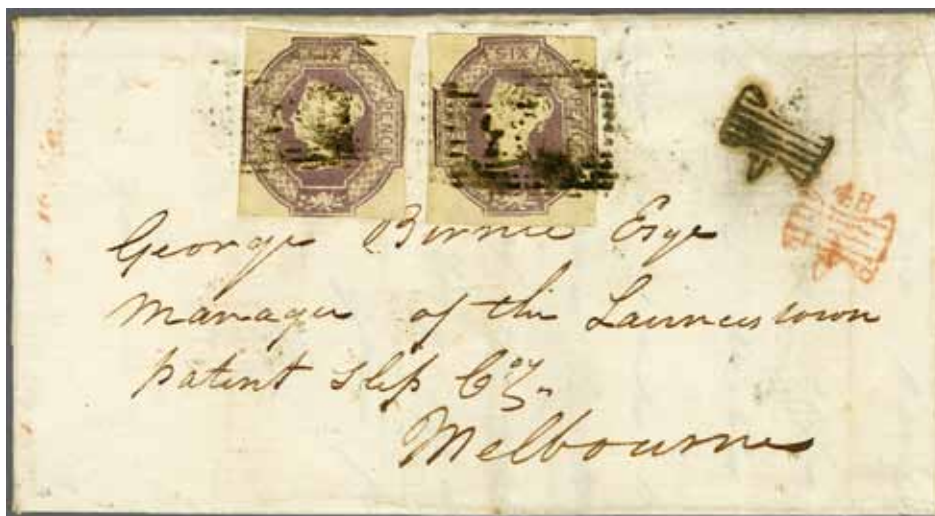 SIX PENCE SIX PENCE
George Birnie Esqe
Manager of the Launcestown
patent slip Coy.
Melbourne